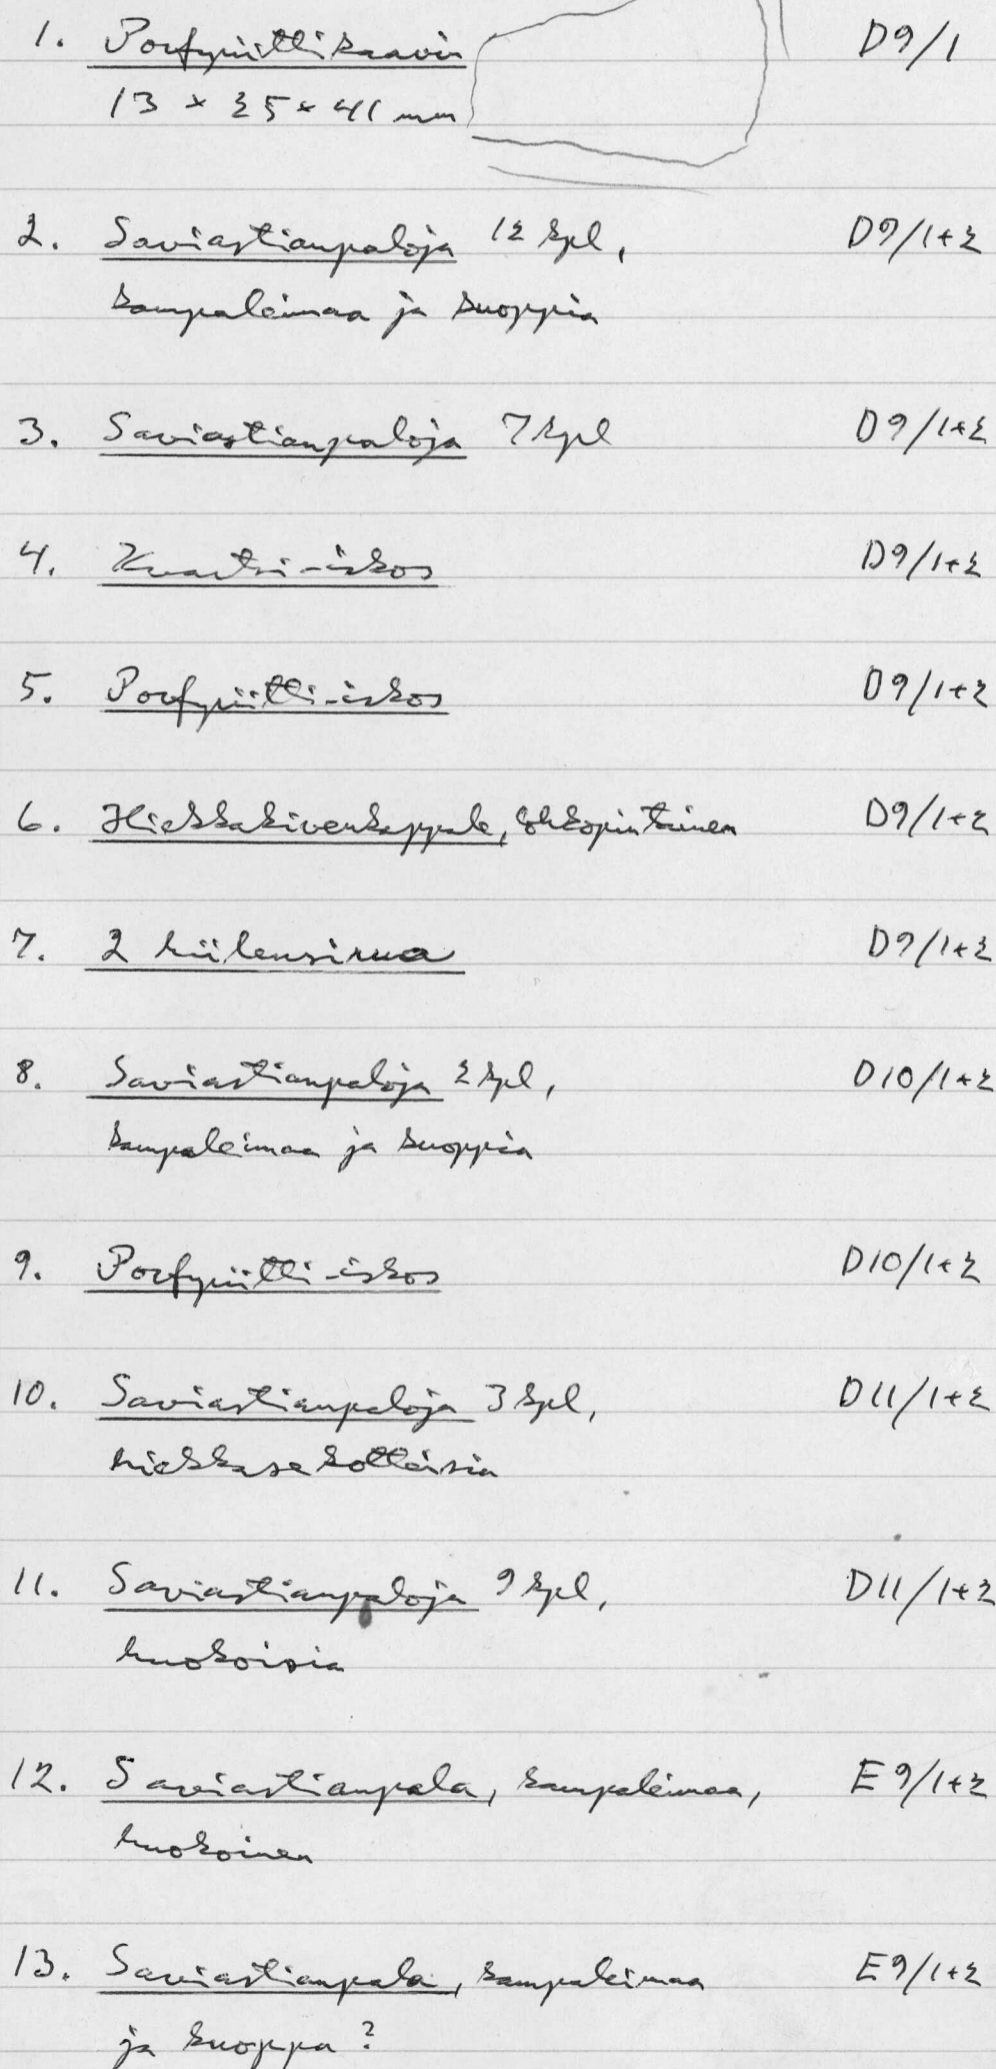 1. Porfyriittikaavin D9/1
13 x 25 x 41 mm
2. Saviastianpaloja 12 kpl, D9/1+2
kampaleimaa ja kuoppia
3. Saviastianpaloja 7 kpl D9/1+2
4. Kvartsi-iskos D9/1+2
5. Porfyriitti-iskos D9/1+2
6. Hiekkakivenkappale, lohkopintainen D9/1+2
7. 2 hiilensirua D9/1+2
8. Saviastianpaloja 2 kpl, D10/1+2
kampaleimaa ja kuoppia
9. Porfyriitti-iskos D10/1+2
10. Saviastianpaloja 3 kpl, D11/1+2
hiekkasekoitteisia
11. Saviastianpaloja 9 kpl, D11/1+2
huokoisia
12. Saviastianpala, kampaleimaa, E9/1+2
huokoinen
13. Saviastianpala, kampaleimaa E9/1+2
ja kuoppa?